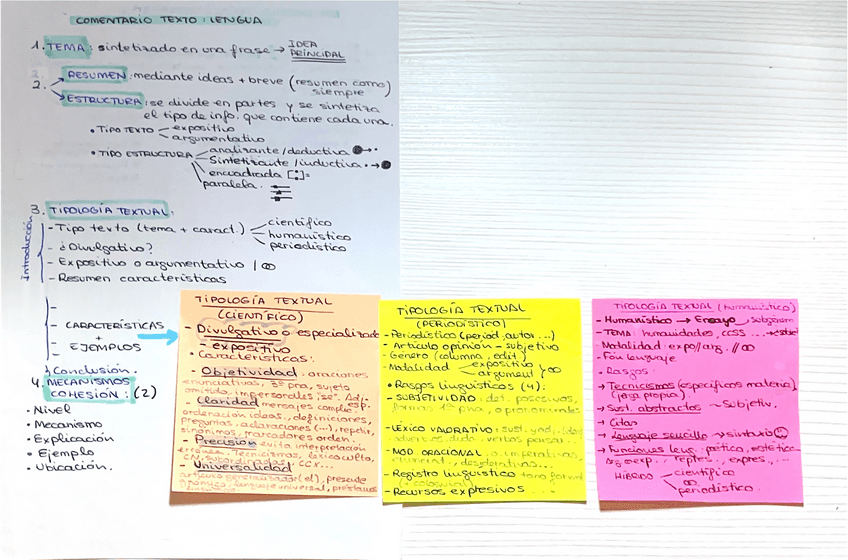 COMENTARIO TEXTO: LENGUA
1. TEMA: sintetizado en una frase → IDEA
PRINCIPAL
2. RESUMEN: mediante ideas + breve (resumen como
siempre
ESTRUCTURA: se divide en partes y se sintetiza
el tipo de info. que contiene cada una.
• TIPO TEXTO expositivo
argumentativo
• TIPO ESTRUCTURA analizante/deductiva
Sintetizante/inductiva
encuadrada
paralela.
3. TIPOLOGÍA TEXTUAL.
Introducción
- Tipo texto (tema + caract.) científico
humanístico
periodístico
- ¿Divulgativo?
- Expositivo o argumentativo / ∞
- Resumen características
- CARACTERÍSTICAS
+
EJEMPLOS
Conclusión.
4. MECANISMOS
COHESIÓN: (2)
• Nivel
• Mecanismo
• Explicación
• Ejemplo
• Ubicación.
TIPOLOGÍA TEXTUAL
(CIENTÍFICO)
- Divulgativo o especializado
- expositivo
• Características:
- Objetividad: oraciones
enunciativas, 3ª pna, sujeto
omitido, impersonales "se". Adj.
- Claridad mensajes complej
ordenación ideas, definiciones,
preguntas, aclaraciones (...), repetir,
sinónimos, marcadores orden.
- Precisión evita interpretación
Tecnicismos, léxico culto,
CN, subordinadas, CCX...
- Universalidad
artículo generalizador (el), presente
lenguaje universal, préstamos
TIPOLOGÍA TEXTUAL
(PERIODÍSTICO)
- Periodístico (period, autor ...)
- Artículo opinión - subjetivo
- Género (columna, edit.)
- Modalidad expositivo
argument ∞
• Rasgos lingüísticos (4):
- SUBJETIVIDAD: det. posesivos,
formas 1ª pna, o pronominales
- LÉXICO VALORATIVO: sust. y adj.
adverbios duda, verbos pensar...
- MOD. ORACIONAL: o. imperativas,
desiderativas...
- Registro lingüístico tono formal
(+ coloquial)
- Recursos expresivos ...
TIPOLOGÍA TEXTUAL (humanístico)
- Humanístico → Ensayo, subgénero
- TEMA: humanidades, ccss ...
Modalidad: expo//arg. // ∞
- Fón lenguaje
- Rasgos:
→ Tecnicismos (específicos materia)
(jerga propia).
→ Sust. abstractos ~ Subjetiv.
→ Citas
→ Lenguaje sencillo → sintaxis
→ Funciones leng.: poética, estética
expres, ...
HÍBRIDO científico
∞
periodístico.